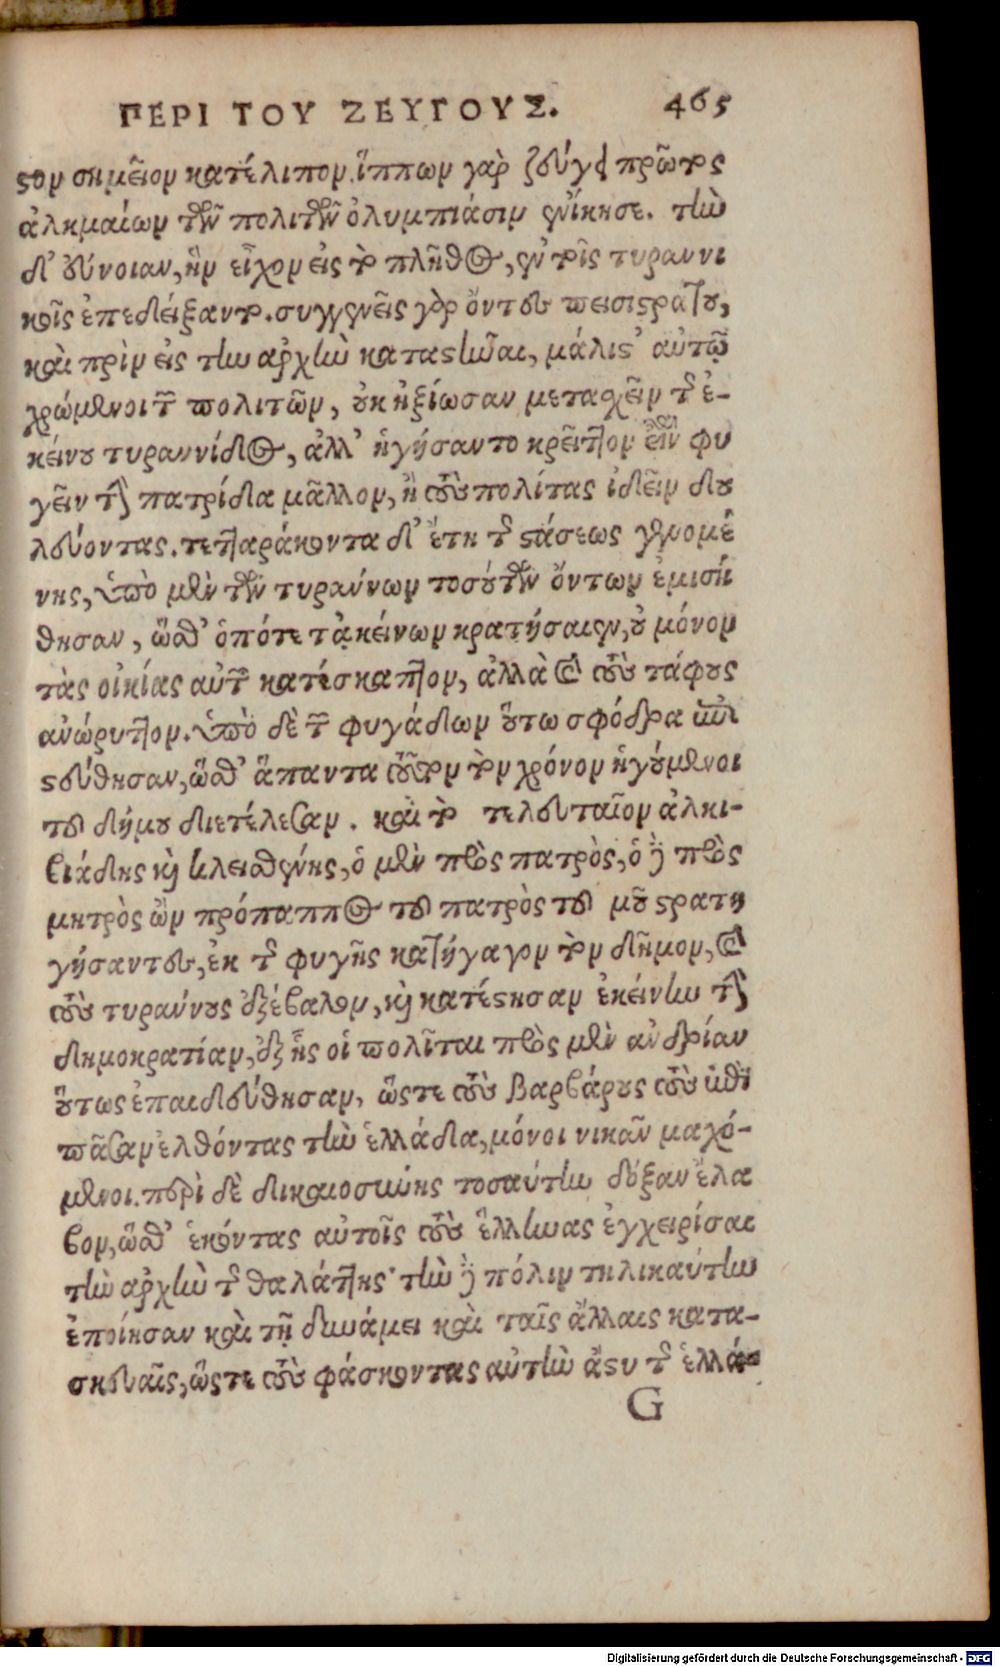 ΠΕΡΙ ΤΟΥ ΖΕΥΓΟΥΣ. 465
ϛον σημεῖον κατέλιπον. ἵππων γὰρ ζεύγει πρῶτος
ἀλκμαίων τῶν πολιτῶν ὀλυμπιάσιν ἐνίκησε. τὴν
δ' εὔνοιαν, ἣν εἶχον εἰς τὸ πλῆθος, ἐν τοῖς τυραννι
κοῖς ἐπεδείξαντο. συγγενεῖς γὰρ ὄντες πεισιϛράτου,
καὶ πρὶν εἰς τὴν ἀρχὴν καταϛῆναι, μάλιϛ' αὐτῷ
χρώμενοι τῶν πολιτῶν, οὐκ ἠξίωσαν μετασχεῖν τῆς ἐ-
κείνου τυραννίδος, ἀλλ' ἡγήσαντο κρεῖττον εἶναι φυ
γεῖν τὴν πατρίδα μᾶλλον, ἢ τοὺς πολίτας ἰδεῖν δου
λεύοντας. τετταράκοντα δ' ἔτη τῆς ϛάσεως γενομέ
νης, ὑπὸ μὲν τῶν τυράννων τοσούτων ὄντων ἐμισή
θησαν, ὥσθ' ὁπότε τἀκείνων κρατήσαιεν, οὐ μόνον
τὰς οἰκίας αὐτῶν κατέσκαπτον, ἀλλὰ καὶ τοὺς τάφους
ἀνώρυττον. ὑπὸ δὲ τῶν φυγάδων οὕτω σφόδρα ἐπι
ϛεύθησαν, ὥσθ' ἅπαντα τοῦτον τὸν χρόνον ἡγούμενοι
τοῦ δήμου διετέλεσαν. καὶ τὸ τελευταῖον ἀλκι-
βιάδης καὶ κλεισθένης, ὁ μὲν πρὸς πατρὸς, ὁ δὲ πρὸς
μητρὸς ὢν πρόπαππος τοῦ πατρὸς τοῦ μοῦ ϛρατη
γήσαντες, ἐκ τῆς φυγῆς κατήγαγον τὸν δῆμον, καὶ
τοὺς τυράννους ἐξέβαλον, καὶ κατέϛησαν ἐκείνην τὴν
δημοκρατίαν, ἐξ ἧς οἱ πολῖται πρὸς μὲν ἀνδρίαν
οὕτως ἐπαιδεύθησαν, ὥστε τοὺς βαρβάρους τοὺς ἐπὶ
πᾶσαν ἐλθόντας τὴν ἑλλάδα, μόνοι νικᾶν μαχό-
μενοι. περὶ δὲ δικαιοσύνης τοσαύτην δόξαν ἔλα
βον, ὥσθ' ἑκόντας αὐτοῖς τοὺς ἕλληνας ἐγχειρίσαι
τὴν ἀρχὴν τῆς θαλάττης· τὴν δὲ πόλιν τηλικαύτην
ἐποίησαν καὶ τῇ δυνάμει καὶ ταῖς ἄλλαις κατα-
σκευαῖς, ὥστε τοὺς φάσκοντας αὐτὴν ἄϛυ τῆς ἑλλά-
G
Digitalisierung gefördert durch die Deutsche Forschungsgemeinschaft - DFG